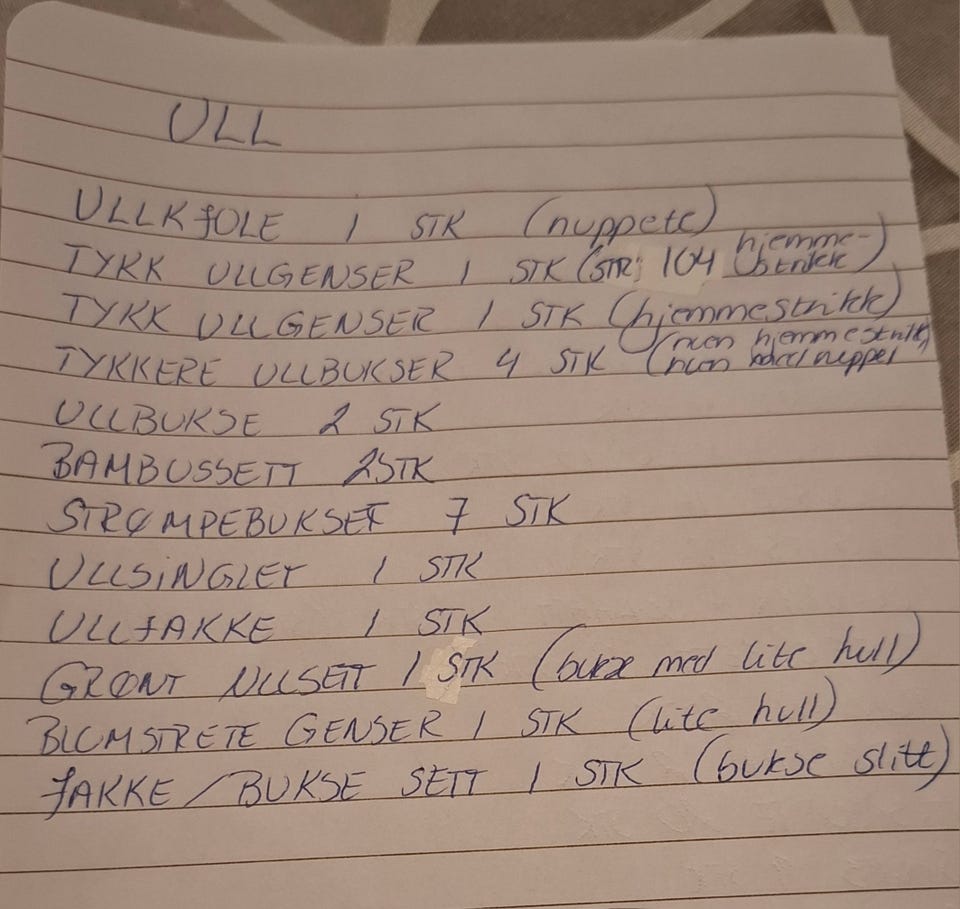 ULL
ULLKJOLE 1 STK (nuppete)
TYKK ULLGENSER 1 STK (STR: 104 hjemme-
strikk)
TYKK ULLGENSER 1 STK (hjemmestrikk)
TYKKERE ULLBUKSER 4 STK (noen hjemmestrikk,
noen nuppet
ULLBUKSE 2 STK
BAMBUSSETT 2STK
STRØMPEBUKSER 7 STK
ULLSINGLET 1 STK
ULLJAKKE 1 STK
GRØNT ULLSETT 1 STK (bukse med lite hull)
BLOMSTRETE GENSER 1 STK (lite hull)
JAKKE/BUKSE SETT 1 STK (bukse slitt)